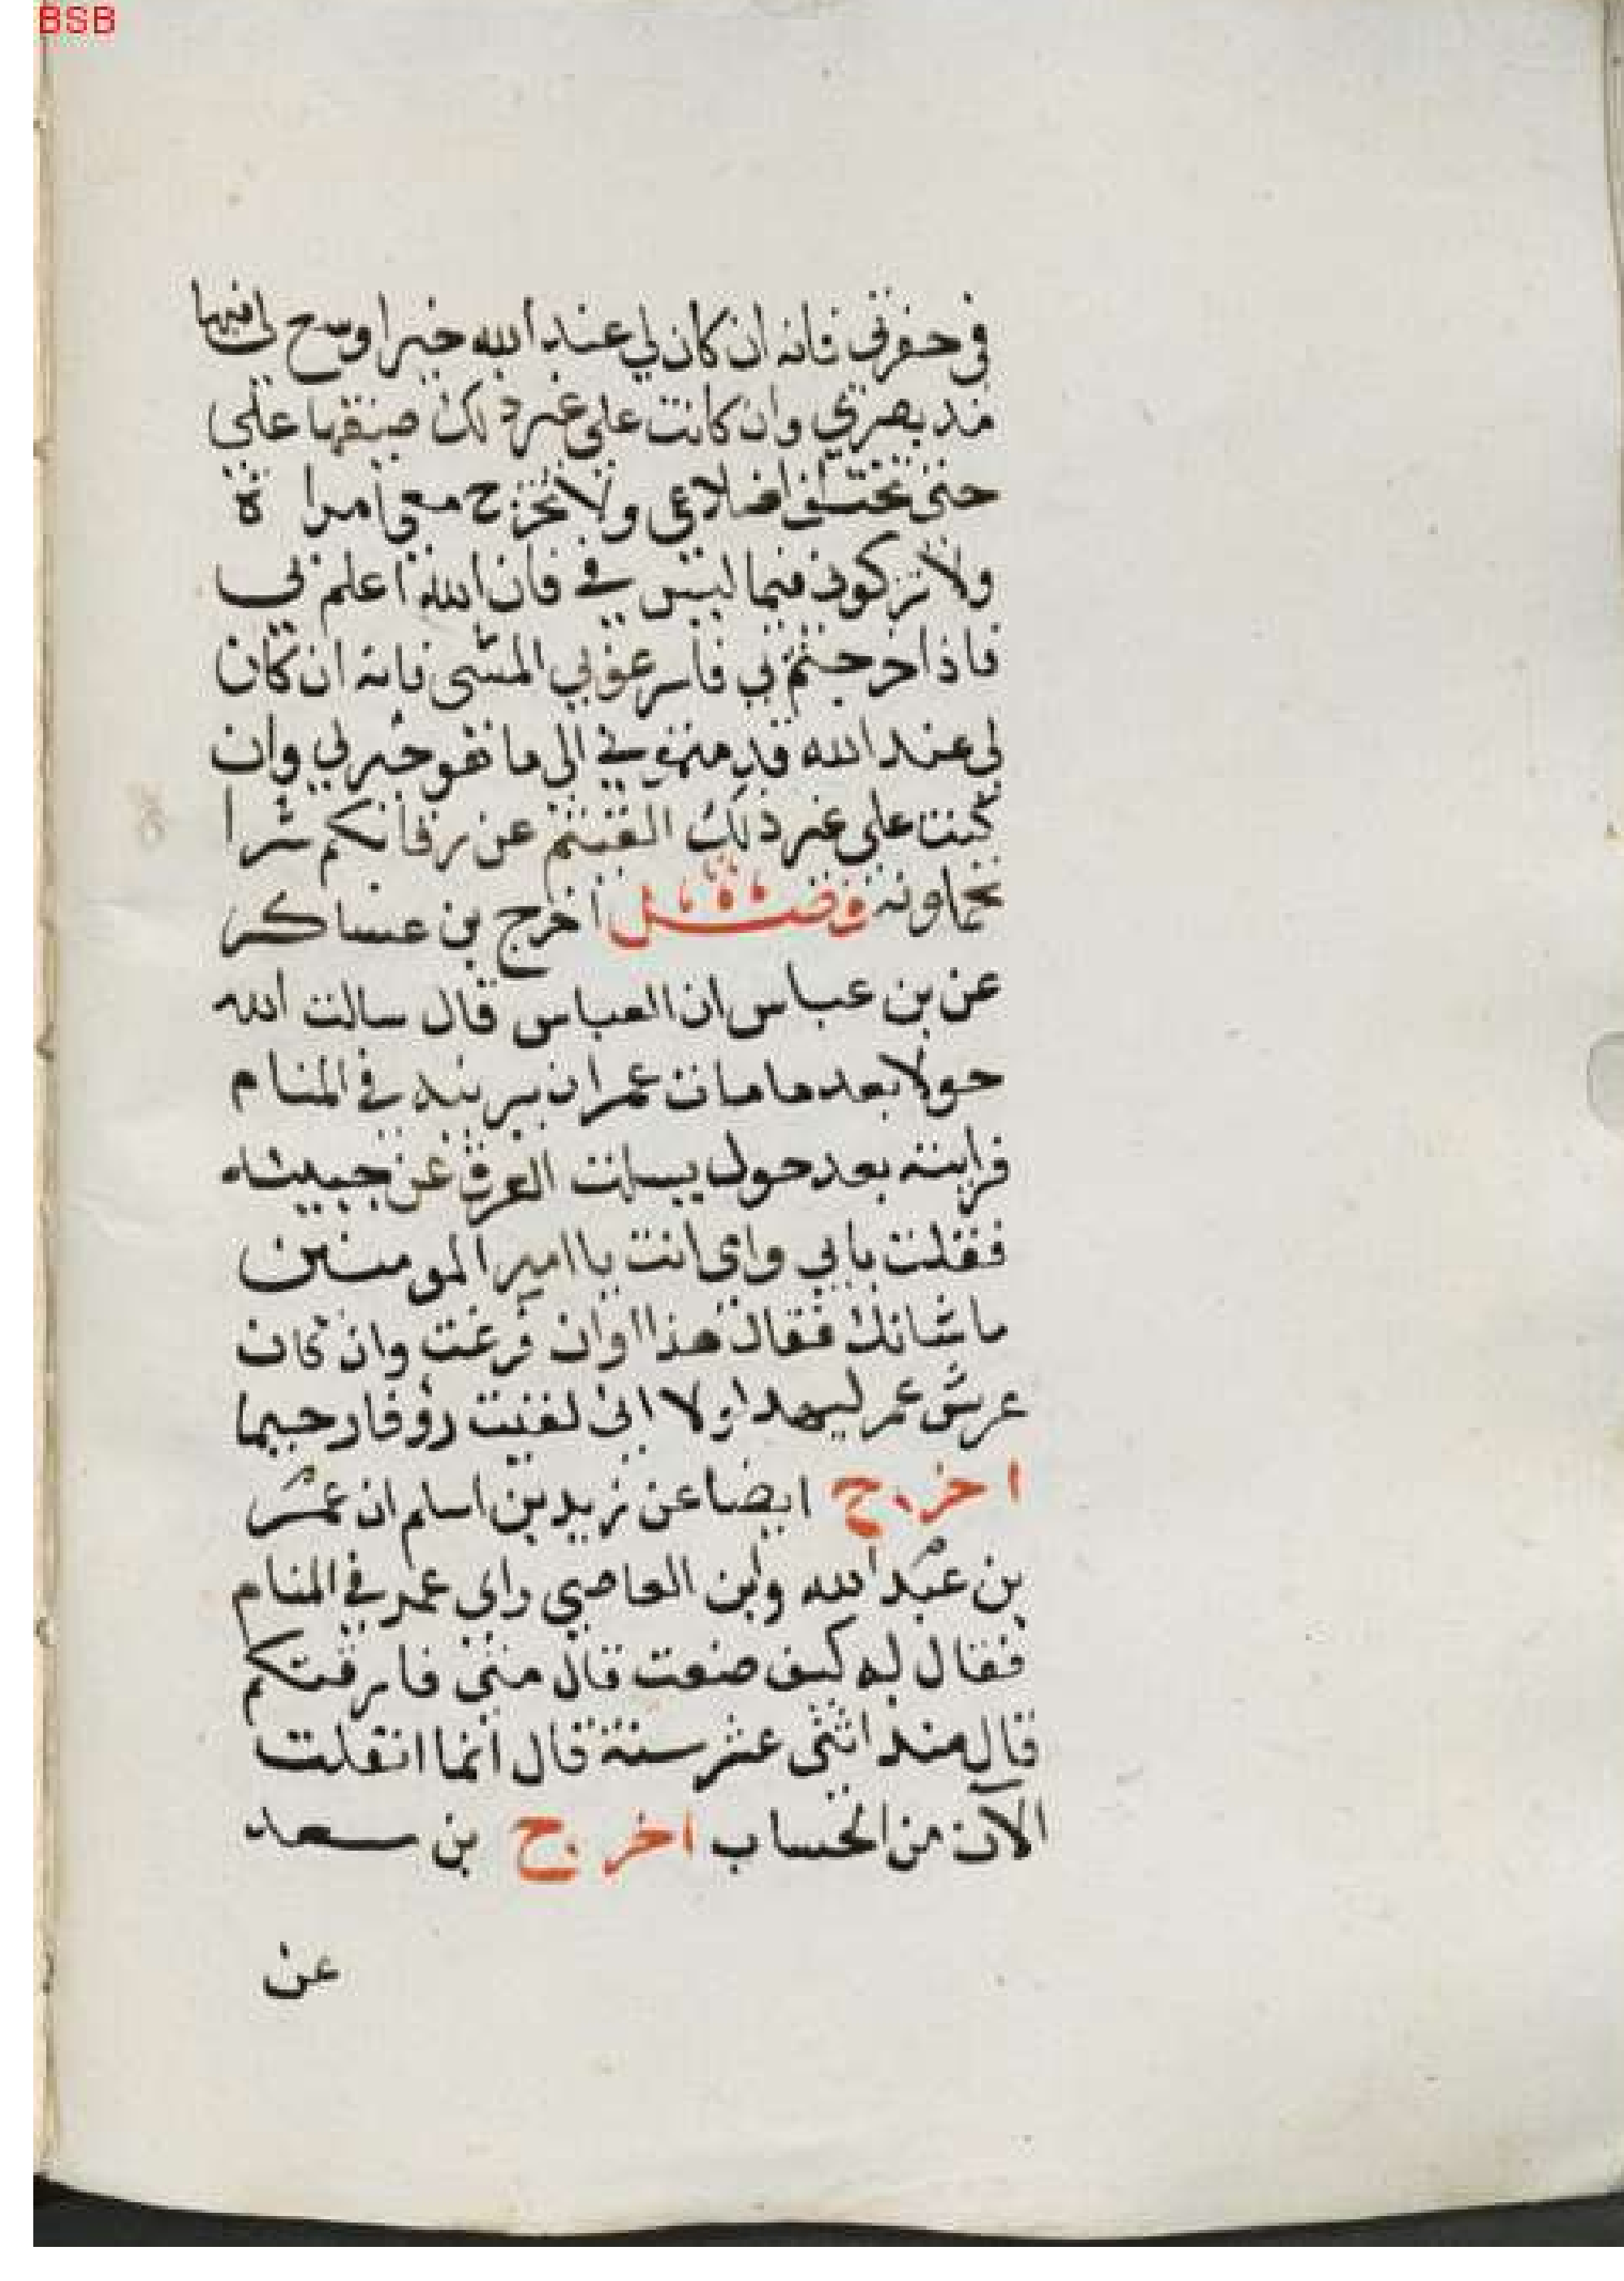 BSB
في حفرتي فانه ان كان لي عند الله خيرا وسع لي فيها
مد بصري وان كانت على غير ذلك ضيقها على
حتى تختلف اضلاعي ولا تخرج معي امراة
ولا تزكوني فيما ليس في فان الله اعلم بي
فاذا خرجتم بي فاسرعو بي المشى فانه ان كان
لي عند الله قدمتموني الى ما هو خير لي وان
كنت على غير ذلك القيتم عن رقابكم شرا
تحملونه فصل اخرج بن عساكر
عن بن عباس ان العباس قال سالت الله
حولا بعد ما مات عمر ان يرينه في المنام
فرايته بعد حول يسلت العرق عن جبينه
فقلت بابي وامي انت يا امير المومنين
ما شانك فقال هذا اوان فرغت وان كان
عرش عمر ليهد لولا اني لقيت رؤفا رحيما
اخرج ايضا عن زيد بن اسلم ان عمر
بن عبد الله وبن العاصي راى عمر في المنام
فقال له كيف صنعت قال متى فارقتكم
قال منذ اثنى عشر سنة قال انما انقلت
الآن من الحساب اخرج بن سعد
عن